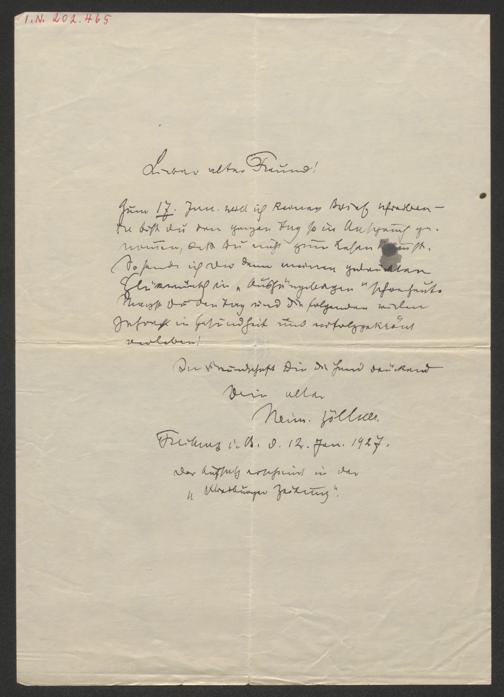 I.N. 202.465
Lieber alter Freund!
Zum 17. Jan. will ich keinen Brief schreiben –
da bist du den ganzen Tag so in Anspruch ge-
nommen, daß du nicht zum Lesen kommst.
So sende ich dir denn meinen gedruckten
Glückwunsch in „Aushängebogen" schon heute
Magst du den Tag und die folgenden vielen
Jahre in Gesundheit und erfolggekrönt
verleben!
In Freundschaft dir die Hand drückend
Dein alter
Heinr. Zöllner.
Freiburg i. B. d. 12. Jan. 1927.
Der Aufsatz erscheint in der
„Freiburger Zeitung".